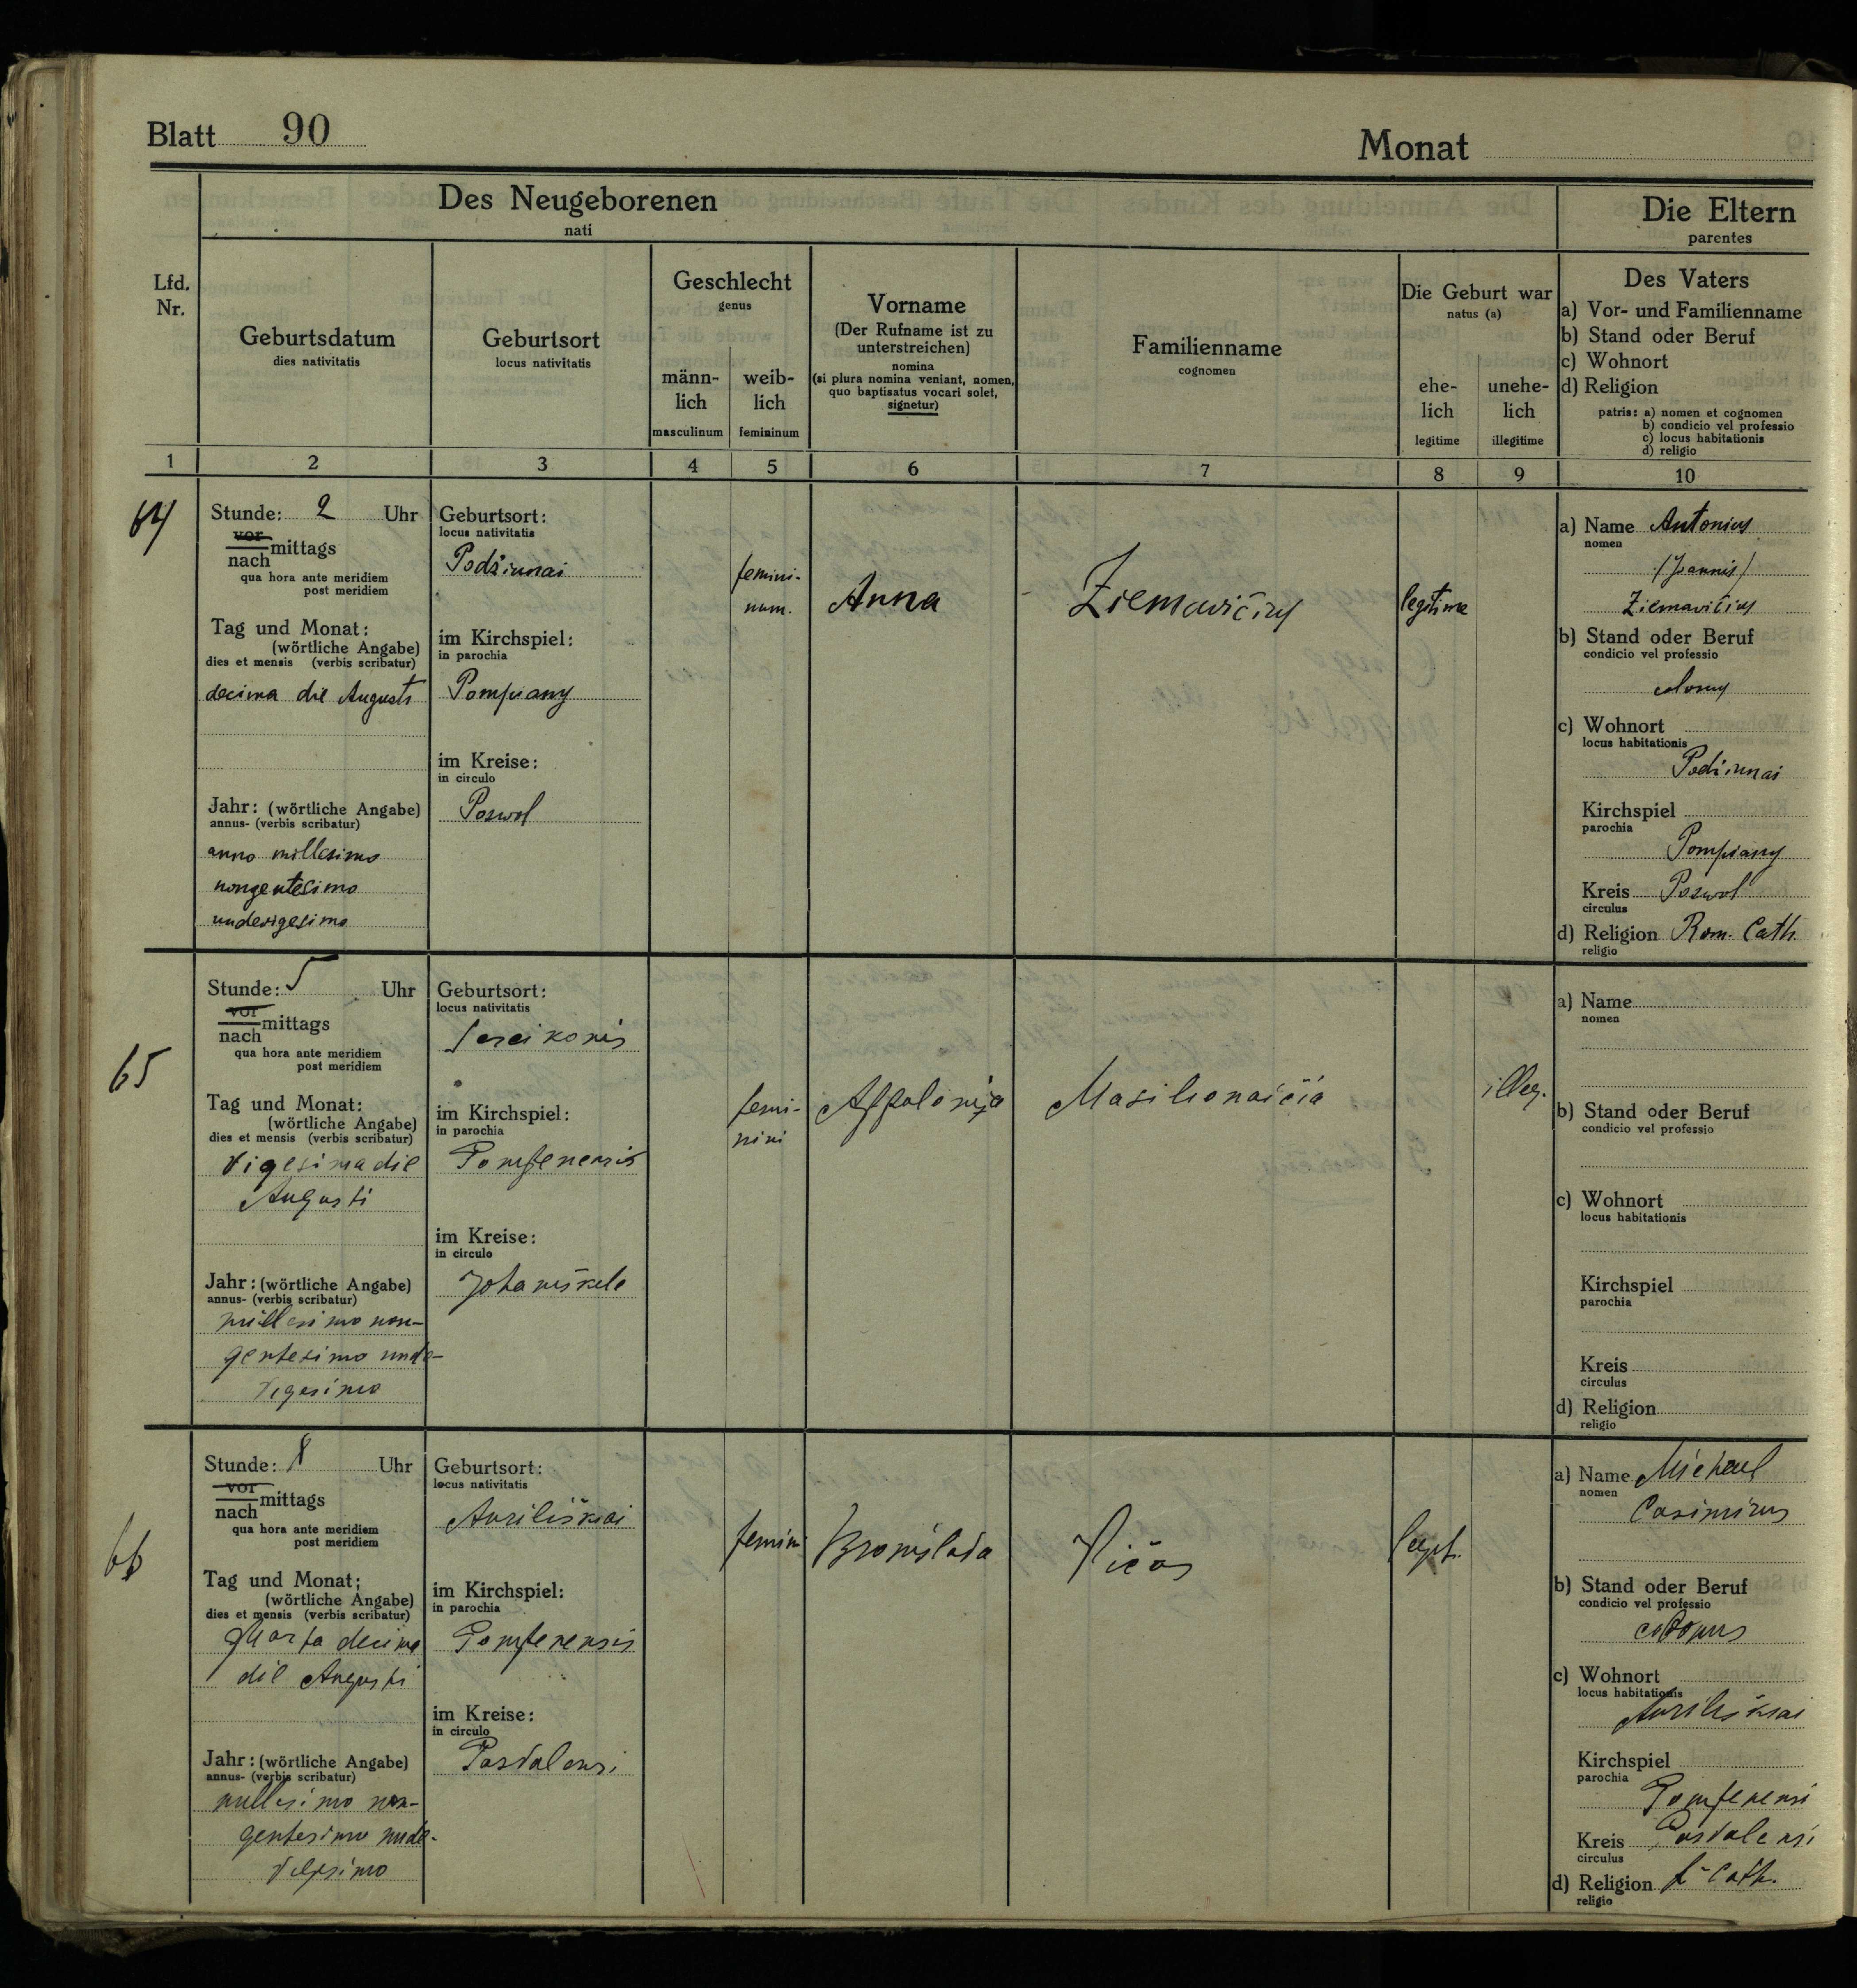 Blatt 90
Monat
Des Neugeborenen
nati
Die Eltern
parentes
Lfd.
Nr.
Geburtsdatum
dies nativitatis
Geburtsort
locus nativitatis
Geschlecht
genus
männ-
lich
masculinum
weib-
lich
femininum
Vorname
(Der Rufname ist zu
unterstreichen)
nomina
(si plura nomina veniant, nomen,
quo baptisatus vocari solet,
signetur)
Familienname
cognomen
Die Geburt war
natus (a)
ehe-
lich
legitime
unehe-
lich
illegitime
Des Vaters
a) Vor- und Familienname
b) Stand oder Beruf
c) Wohnort
d) Religion
patris: a) nomen et cognomen
b) condicio vel professio
c) locus habitationis
d) religio
1 2 3 4 5 6 7 8 9 10
64
Stunde: 2 Uhr
vor
nach mittags
qua hora ante meridiem
post meridiem
Tag und Monat:
(wörtliche Angabe)
dies et mensis (verbis scribatur)
decima die Augusti
Jahr: (wörtliche Angabe)
annus- (verbis scribatur)
anno millesimo
nongentesimo
undevigesimo
Geburtsort:
locus nativitatis
Podžiunai
im Kirchspiel:
in parochia
Pompiany
im Kreise:
in circulo
Poswol
femini-
num.
Anna
Ziemavičius
legitime
a) Name Antonius
nomen
(Joannis)
Ziemavičius
b) Stand oder Beruf
condicio vel professio
colonus
c) Wohnort
locus habitationis
Podžiunai
Kirchspiel
parochia
Pompiany
Kreis Poswol
circulus
d) Religion Rom. Cath.
religio
65
Stunde: 5 Uhr
vor
nach mittags
qua hora ante meridiem
post meridiem
Tag und Monat:
(wörtliche Angabe)
dies et mensis (verbis scribatur)
Vigesima die
Augusti
Jahr: (wörtliche Angabe)
annus- (verbis scribatur)
millesimo non-
gentesimo unde-
vigesimo
Geburtsort:
locus nativitatis
im Kirchspiel:
in parochia
Pompenensis
im Kreise:
in circulo
Johaniškele
femi-
nini
Appolonija
Masilionaičia
illeg.
a) Name
nomen
b) Stand oder Beruf
condicio vel professio
c) Wohnort
locus habitationis
Kirchspiel
parochia
Kreis
circulus
d) Religion
religio
66
Stunde: 8 Uhr
vor
nach mittags
qua hora ante meridiem
post meridiem
Tag und Monat;
(wörtliche Angabe)
dies et mensis (verbis scribatur)
Quarta decima
die Augusti
Jahr: (wörtliche Angabe)
annus- (verbis scribatur)
millesimo non-
gentesimo unde-
vigesimo
Geburtsort:
locus nativitatis
Auriliškiai
im Kirchspiel:
in parochia
Pompenensis
im Kreise:
in circulo
Pasvalensi
femini
Bronislava
Vičas
legit.
a) Name Michael
nomen
Casimirus
b) Stand oder Beruf
condicio vel professio
colonus
c) Wohnort
locus habitationis
Auriliškiai
Kirchspiel
parochia
Pompenensi
Kreis Pasvalensi
circulus
d) Religion r-Cath.
religio